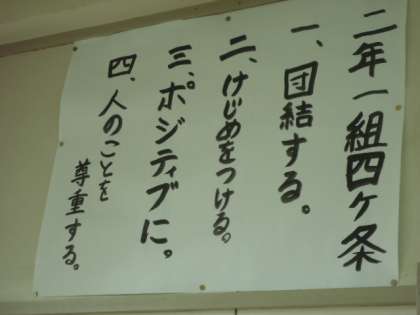 二年一組四ヶ条
一、団結する。
二、けじめをつける。
三、ポジティブに。
四、人のことを
尊重する。